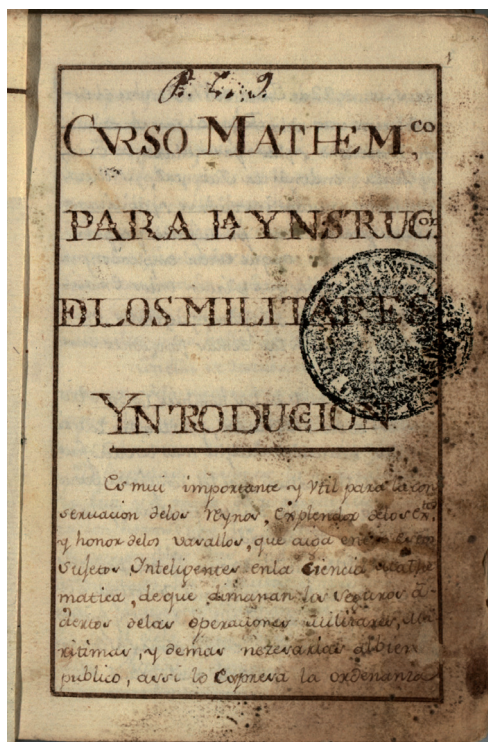 CVRSO MATHEM,co
PARA LA YNSTRUCon.
DE LOS MILITARES
YNTRODUCCION
Es mui importante y Vtil para la con
seruacion delos Reynos, Explendor delos
y honor delos vasallos, que aiga en
sujetos Inteligentes enla Ciencia Mathe
matica, de que dimanan los Seguros a
ciertos delas operaciones Militares, Ma
ritimas, y demas nezesarias albien
publico, assi lo Expresa la ordenanza